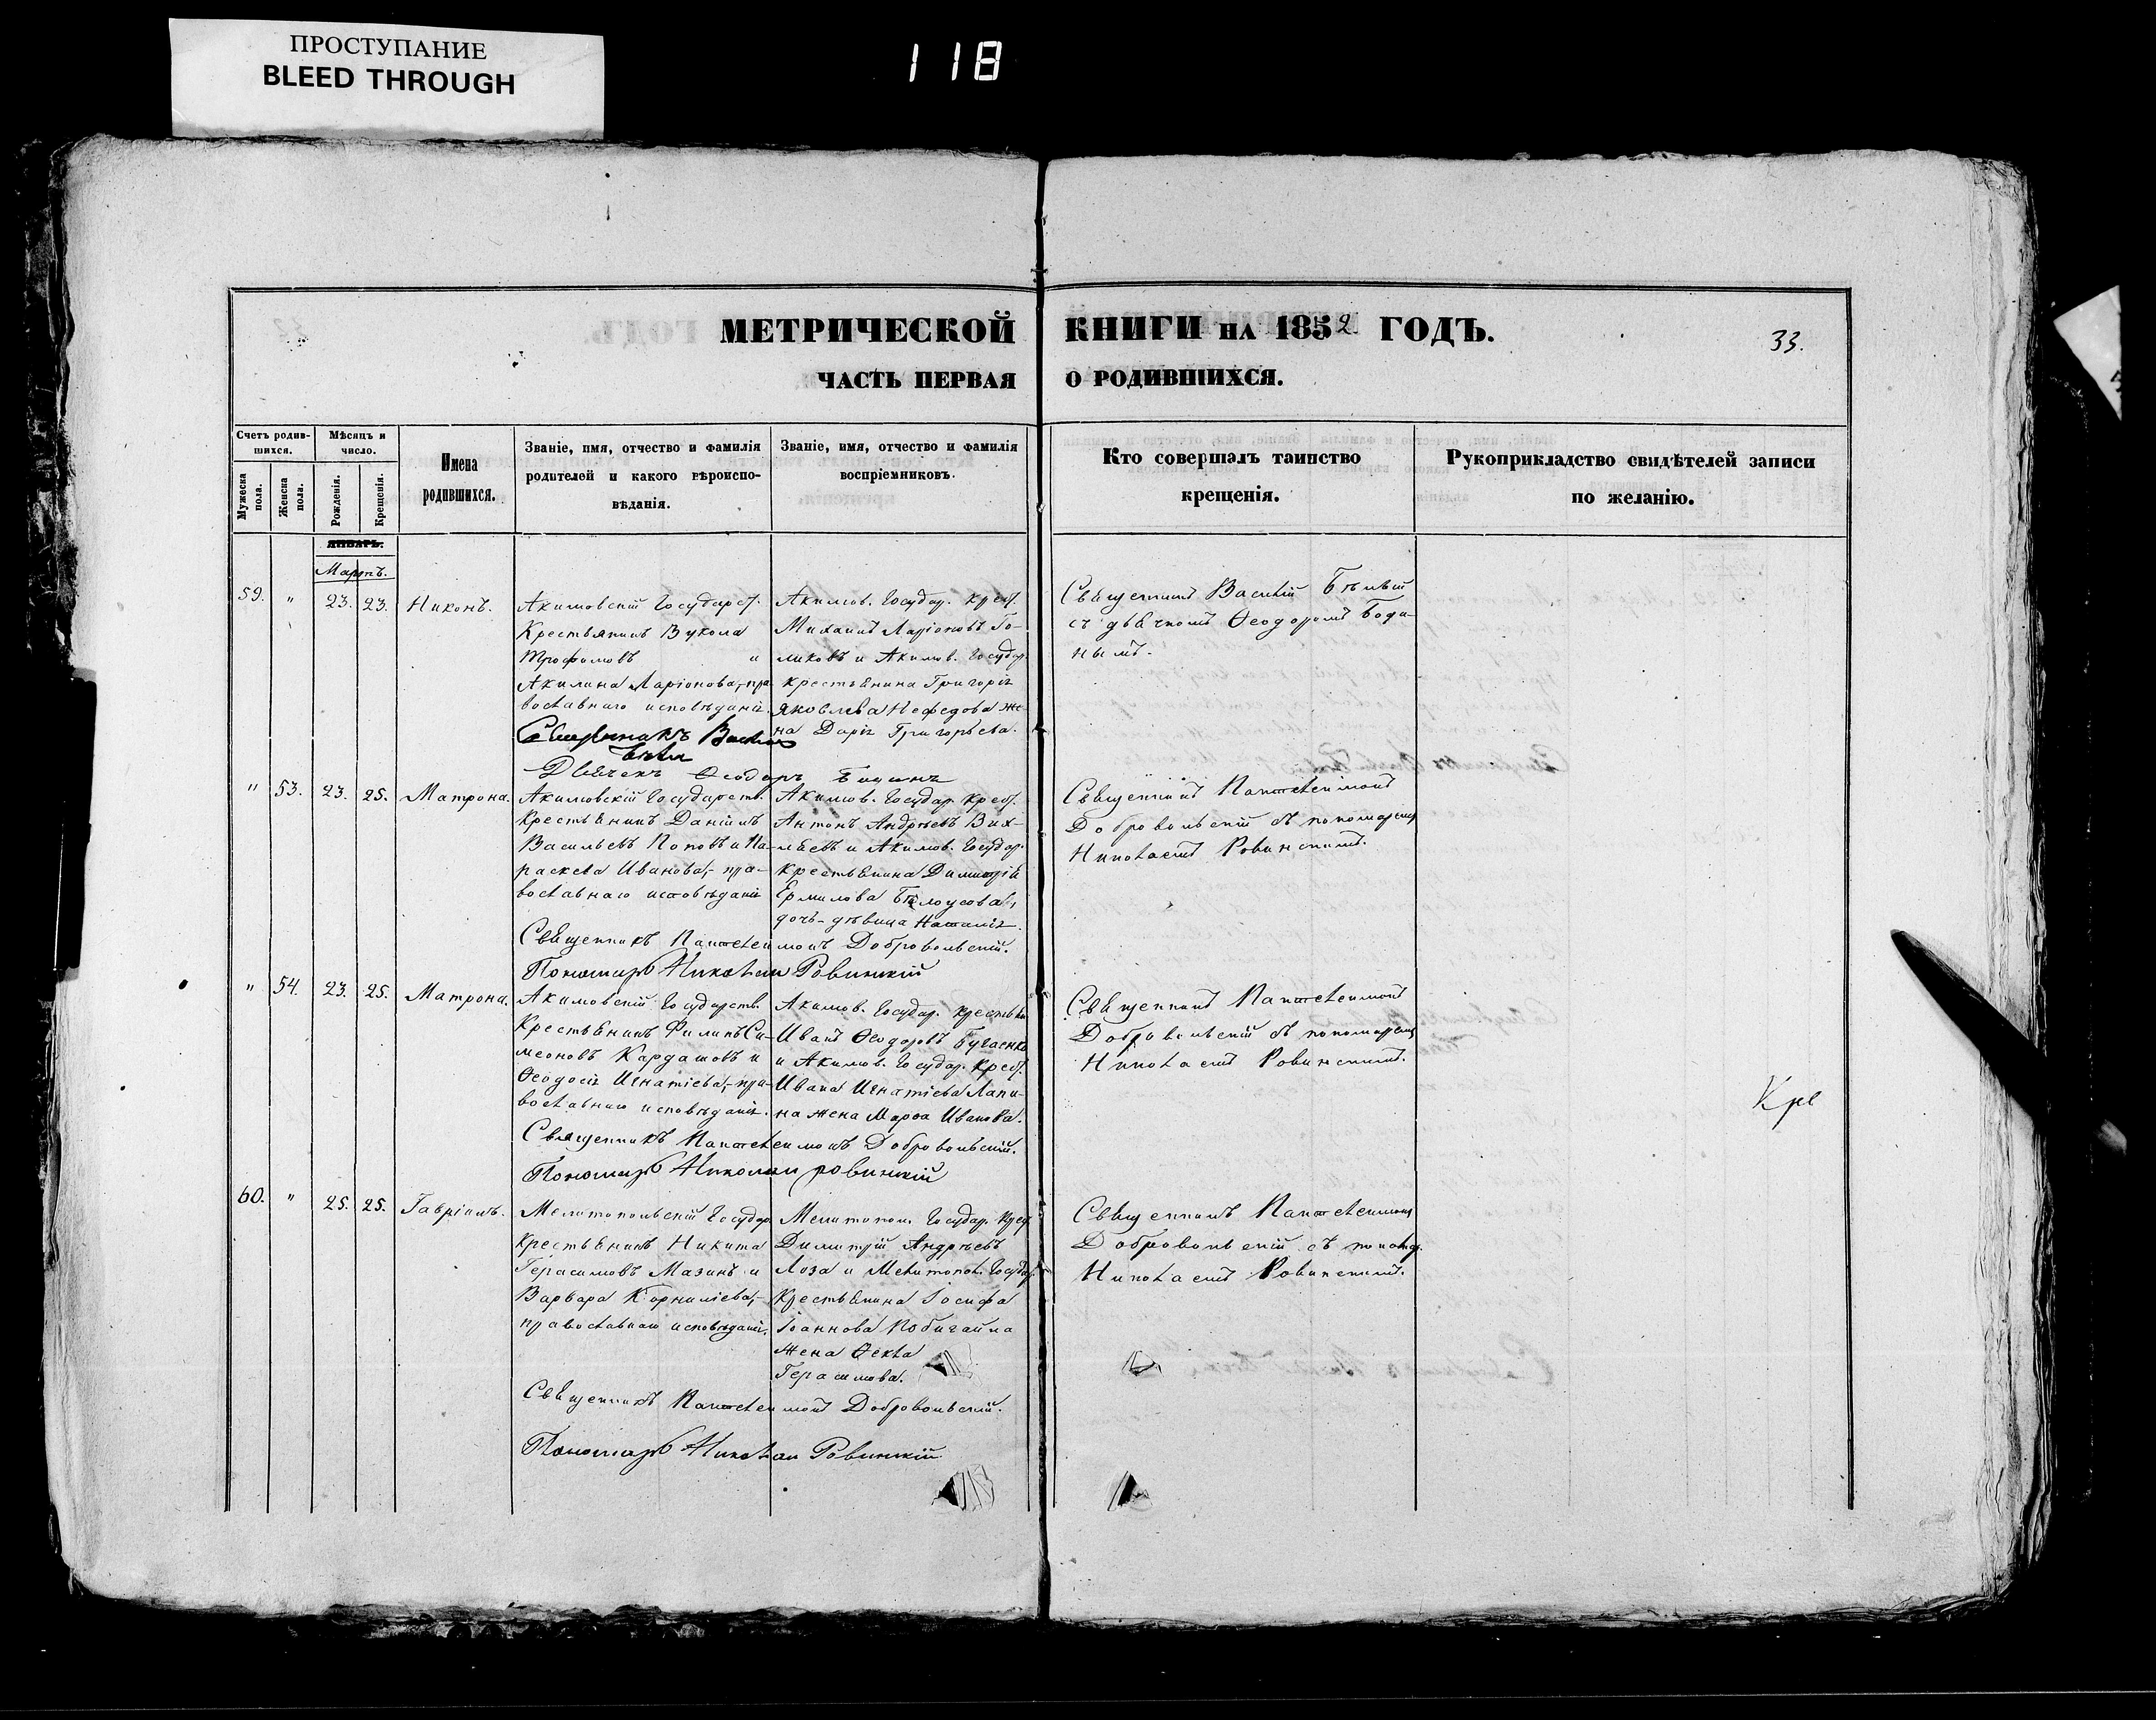 ПРОСТУПАНИЕ
BLEED THROUGH
118
МЕТРИЧЕСКОЙ КНИГИ НА 1852 ГОДЪ.
33.
ЧАСТЬ ПЕРВАЯ О РОДИВШИХСЯ.
Счетъ родив-
шихся.
Мужеска пола.
Женска пола.
Мѣсяцъ и
число.
Рожденія.
Крещенія.
Имена
родившихся.
Званіе, имя, отчество и фамилія
родителей и какого вѣроиспо-
вѣданія.
Званіе, имя, отчество и фамилія
воспріемниковъ.
Кто совершалъ таинство
крещенія.
Рукоприкладство свидѣтелей записи
по желанію.
ЯНВАРЬ.
Мартъ.
59. " 23. 23. Никонъ.
Акимовскій Государст.
Крестьянинъ Вукола
Трофимовъ и
Акилина Ларіонова, пра-
вославнаго исповѣданія.
Акимов. Государ. Крест.
Михаилъ Ларіоновъ Го-
ликовъ и Акимов. Государ.
крестьянина Григорія
Яковлева Нефедова же-
на Дарія Григорьева.
Священникъ Василій Бѣлый
съ дьячкомъ Ѳеодоромъ Боди-
нымъ.
Священникъ Василій
Дьячекъ Ѳеодоръ
" 53. 23. 25. Матрона.
Акимовскій Государств.
Крестьянинъ Даніилъ
Васильевъ Поповъ и Па-
раскева Иванова, пра-
вославнаго исповѣданія
Акимов. Государ. Крест.
Антонъ Андреевъ Вих-
ляевъ и Акимов. Государ.
крестьянина Димитрія
Ермилова Бѣлоусова,
дочь-дѣвица Наталія.
Священникъ Пантелеимонъ
Добровольскій съ пономаремъ
Николаемъ Ровинскимъ.
Священникъ Пантелеимонъ Добровольскій.
Пономарь Николай Ровинскій
" 54. 23. 25. Матрона.
Акимовскій Государств.
Крестьянинъ Филипъ Си-
меоновъ Кардашовъ и
Ѳеодосія Игнатіева, пра-
вославнаго исповѣданія.
Акимов. Государ. крестьян.
Иванъ Ѳеодоровъ Бугаенко
и Акимов. Государ. Крест.
Ивана Игнатіева Лапи-
на жена Марѳа Иванова.
Священникъ Пантелеимонъ
Добровольскій съ пономаремъ
Николаемъ Ровинскимъ.
Священникъ Пантелеимонъ Добровольскій.
Пономарь Николай Ровинскій
60. " 25. 25. Гавріилъ.
Мелитопольскій Государ.
Крестьянинъ Никита
Герасимовъ Мазинъ и
Варвара Корниліева,
православнаго исповѣданія.
Мелитопол. Государ. Крест.
Димитрій Андреевъ
Лоза и Мелитопол. Государ.
Крестьянина Іосифа
Іоаннова
Жена Ѳекла
Герасимова.
Священникъ Пантелеимонъ
Добровольскій съ пономар.
Николаемъ Ровинскимъ.
Священникъ Пантелеимонъ Добровольскій.
Пономарь Николай Ровинскій